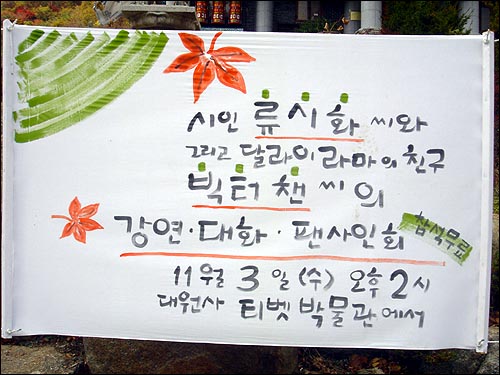 시인 류시화 씨와
그리고 달라이 라마의 친구
빅터 챈 씨의
강연·대화·팬사인회
참석무료
11월 3일 (수) 오후 2시
대원사 티벳 박물관에서